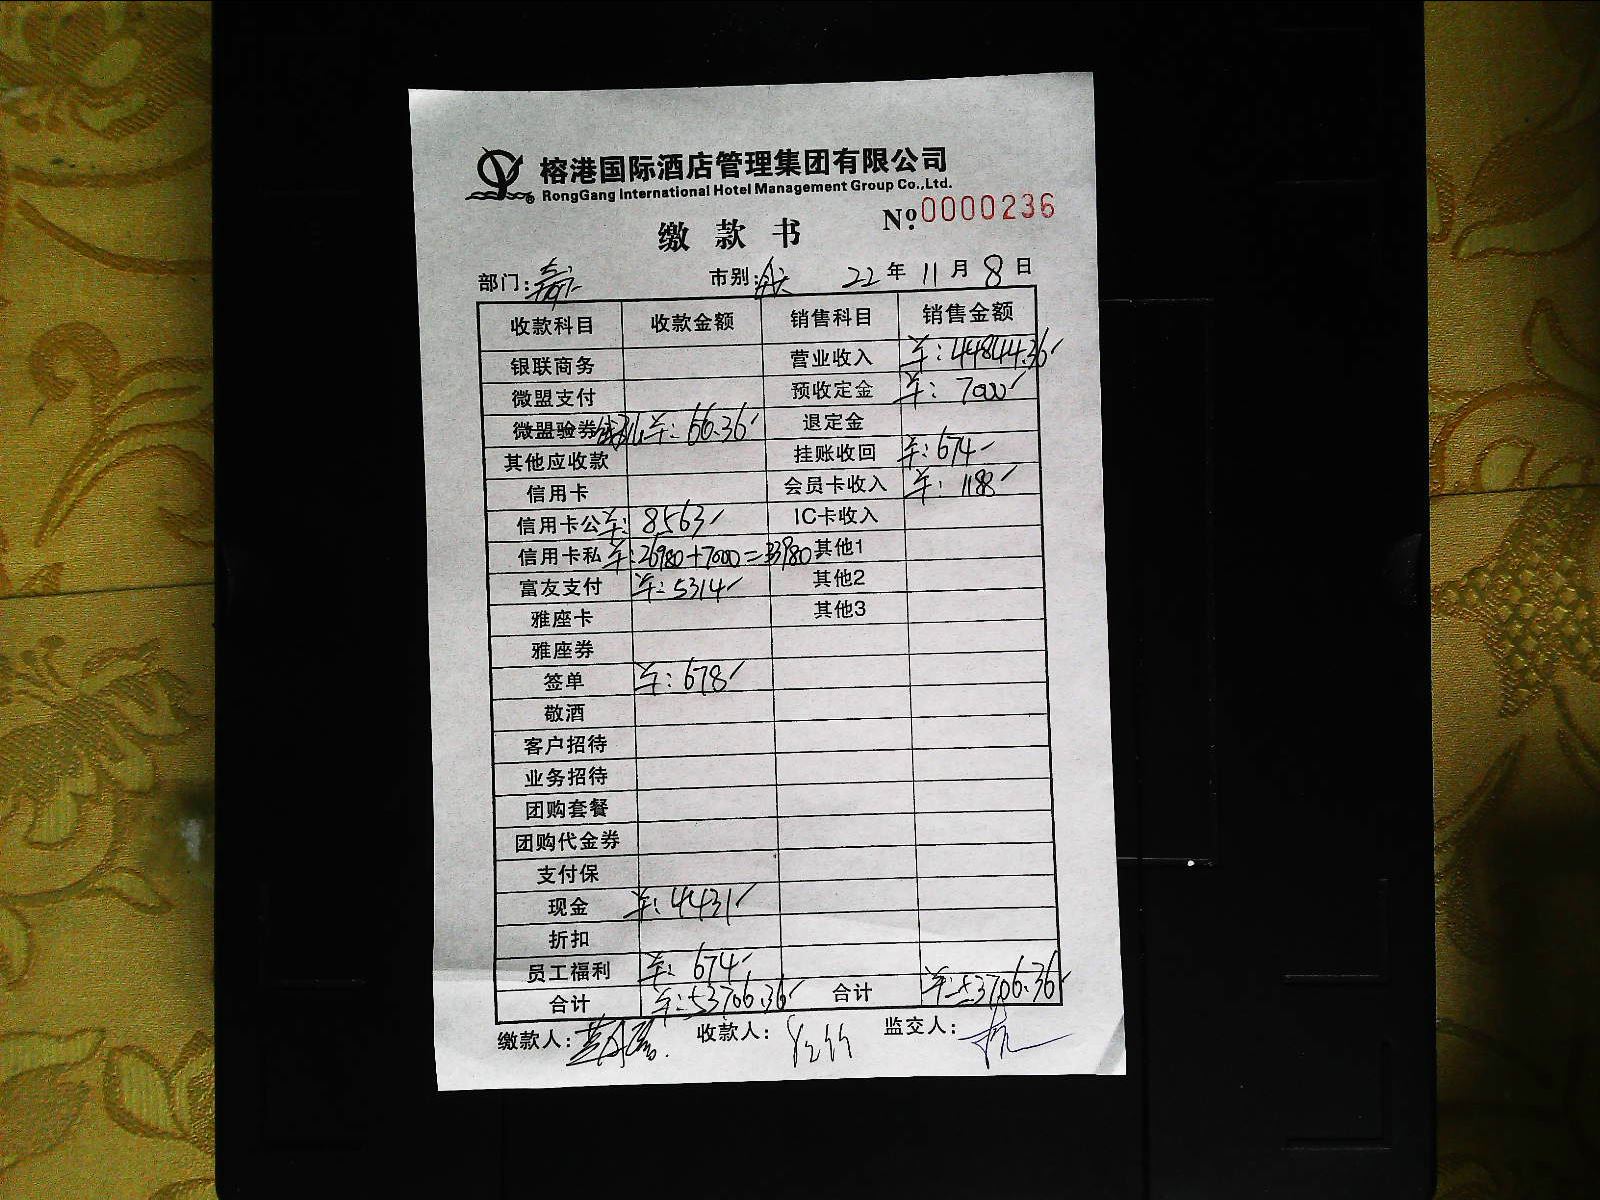 榕港国际酒店管理集团有限公司
RongGang International Hotel Management Group Co.,Ltd.
缴款书 Nº:0000236
部门: 市别: 22年11月8日
收款科目 收款金额 销售科目 销售金额
银联商务 营业收入 羊:44844.36
微盟支付 预收定金 羊:7000
微盟验券 羊:66.36 退定金
其他应收款 挂账收回 羊:674
信用卡 会员卡收入 羊:1188
信用卡公 羊:8563 IC卡收入
信用卡私 羊:26980+7000=33980 其他1
富友支付 羊:5314 其他2
雅座卡 其他3
雅座券
签单 羊:678
敬酒
客户招待
业务招待
团购套餐
团购代金券
支付保
现金 羊:4431
折扣
员工福利 羊:674
合计 羊:53706.36 合计 羊:53706.36
缴款人: 收款人: 监交人: